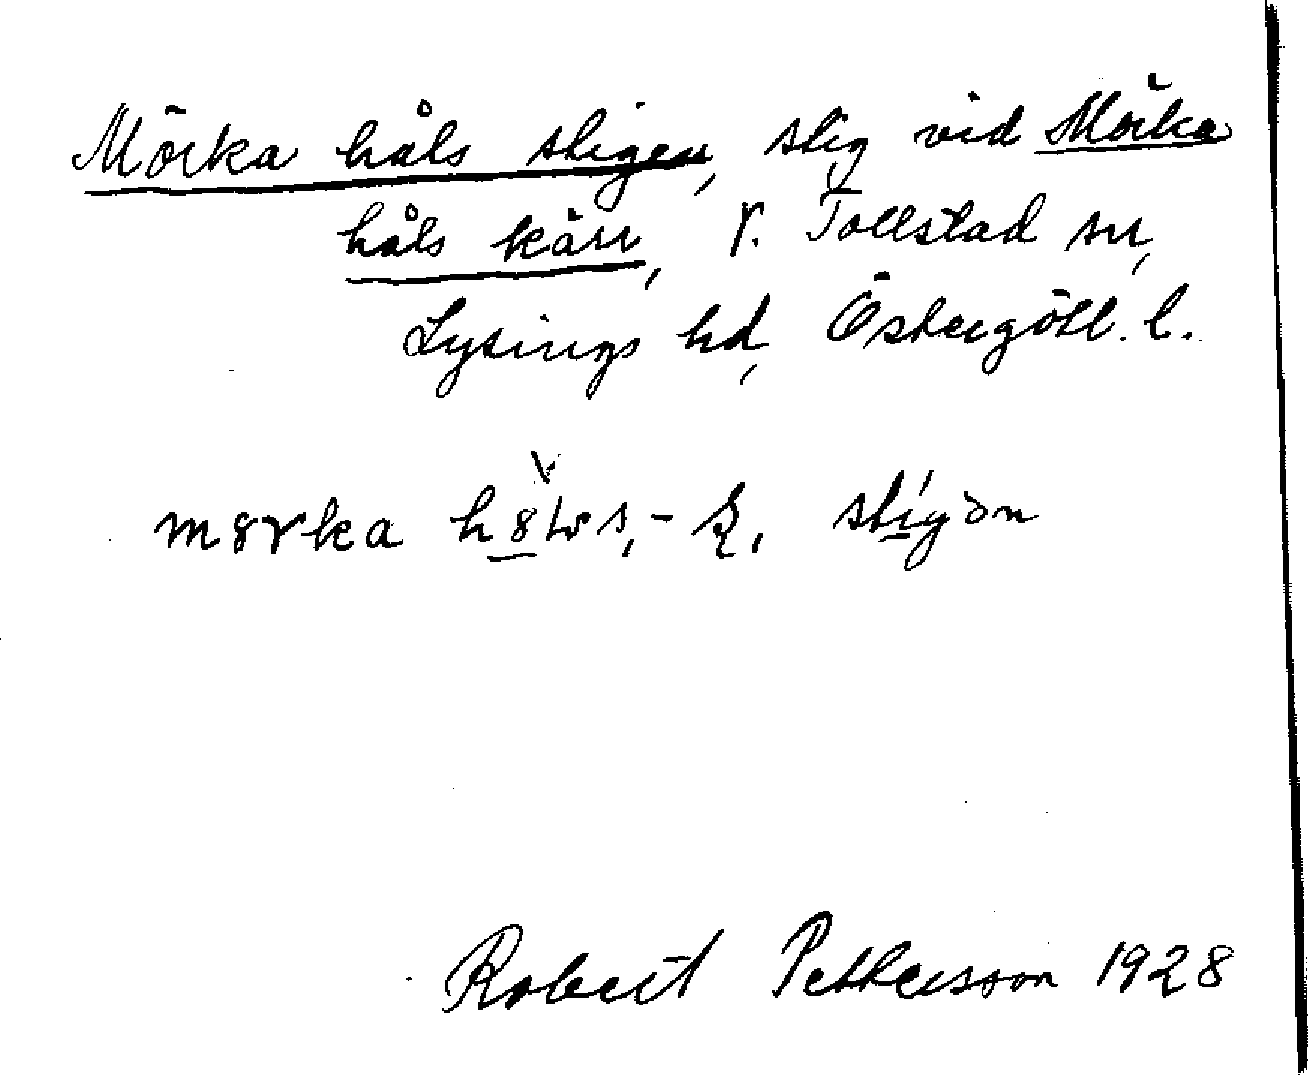 Mörka håls stigen, stig vid Mörka
håls kärr, V. Tollstad sn,
Lysings hd, Östergötl. l.
Robert Pettersson 1928